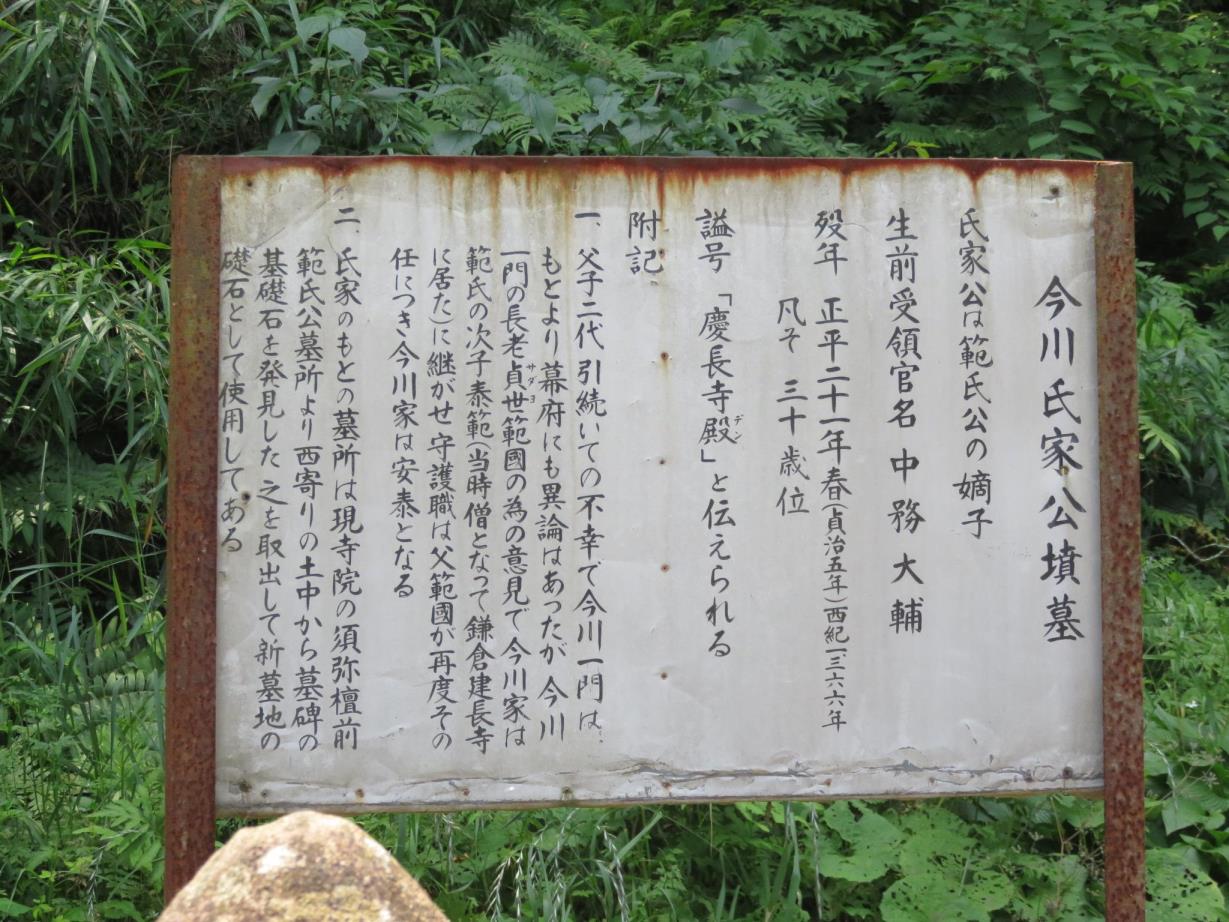 今川氏家公墳墓
氏家公は範氏公の嫡子
生前受領官名 中務大輔
歿年 正平二十一年春(貞治五年)西紀一、三六六年
凡そ 三十歳位
謚号「慶長寺殿」と伝えられる
デン
附記
一、父子二代引続いての不幸で今川一門は、
もとより幕府にも異論はあったが今川
一門の長老貞世範國の為の意見で今川家は
サダヨ
範氏の次子泰範(当時僧となって鎌倉建長寺
に居た)に継がせ守護職は父範國が再度その
任につき今川家は安泰となる
二、氏家のもとの墓所は現寺院の須弥檀前
範氏公墓所より西寄りの土中から墓碑の
基礎石を発見した之を取出して新墓地の
礎石として使用してある